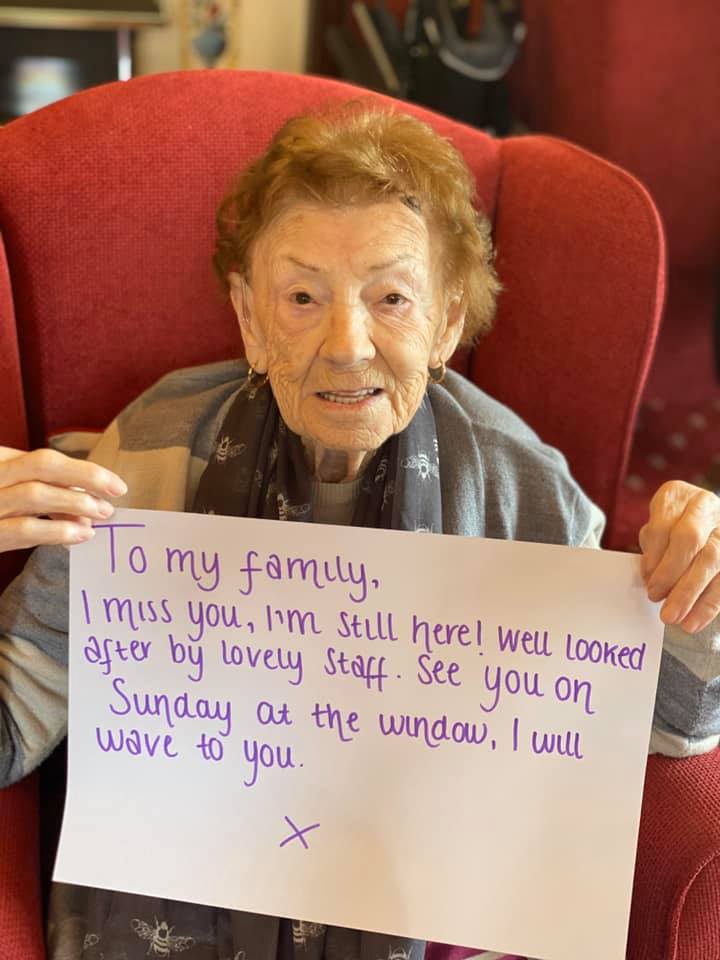 To my family,
I miss you, I'm still here! Well looked
after by lovely staff. See you on
Sunday at the window, I will
wave to you.
X